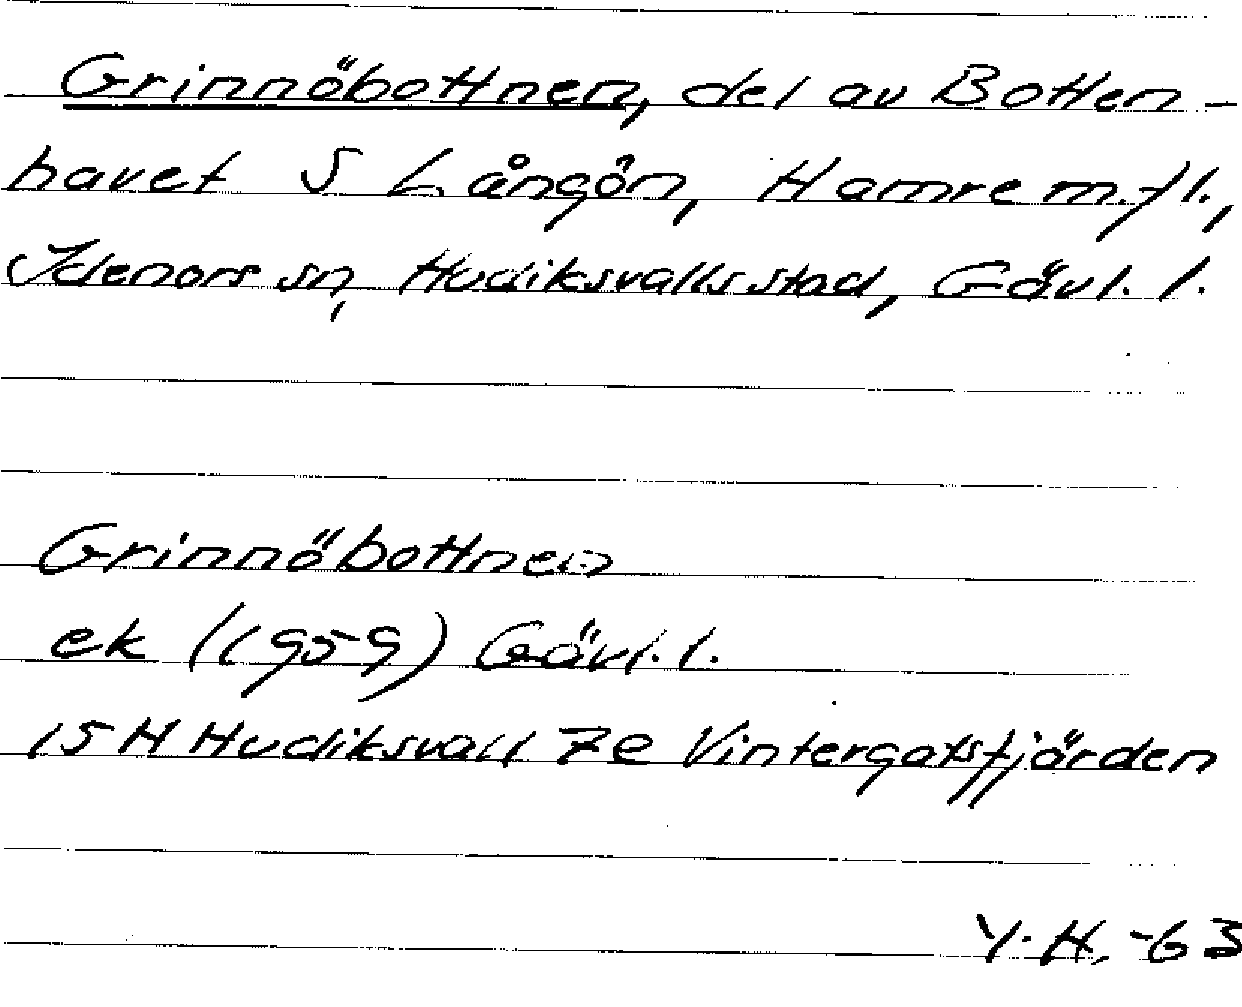 Grinnöbottnen, del av Botten-
havet S Långön, Hamre m.fl.,
Idenors sn, Hudiksvalls stad, Gävl. l.
Grinnöbottnen
ek (1959) Gävl. l.
15H Hudiksvall 7e Vintergatsfjärden
Y.H. -63